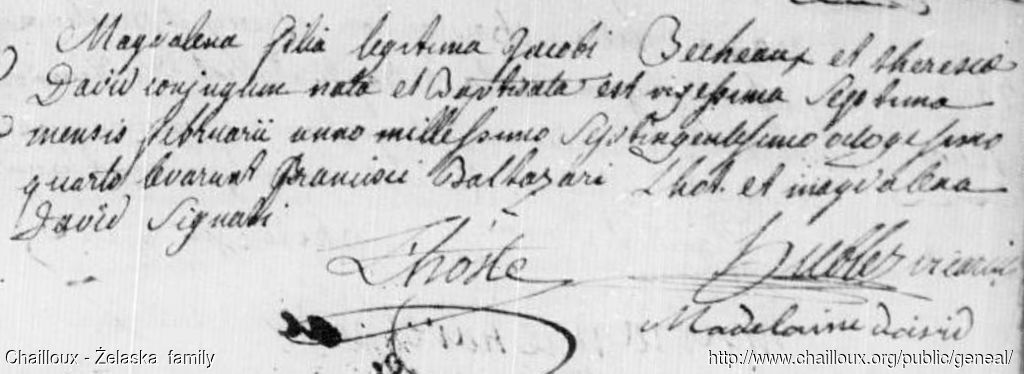 Magdalena filia legitima Jacobi Becheaux et theresiæ
David conjugum nata et Baptisata est vigessima Septima
mensis februarii anno millessimo Septingentessimo octogesimo
quarto levarunt Francisci Baltazari Lhot. et magdalena
David Signati
Lhoste
vicarius
Madelaine david
Chailloux - Żelaska family
http://www.chailloux.org/public/geneal/